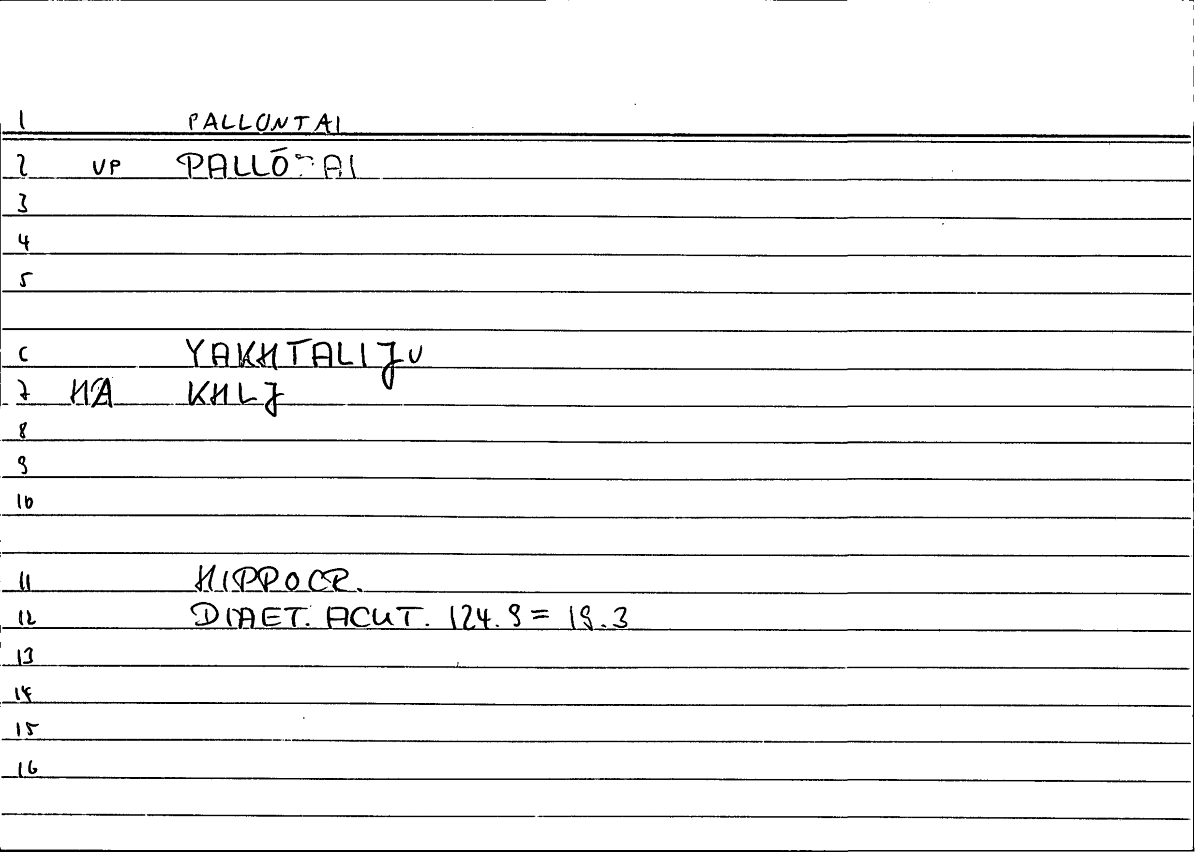 1 PALLONTAI
2 VP
3
4
5
6 YAKHTALIJU
7 HA KHLJ
8
9
10
11 HIPPOCR.
12 DIAET. ACUT. 124.9 = 19.3
13
14
15
16